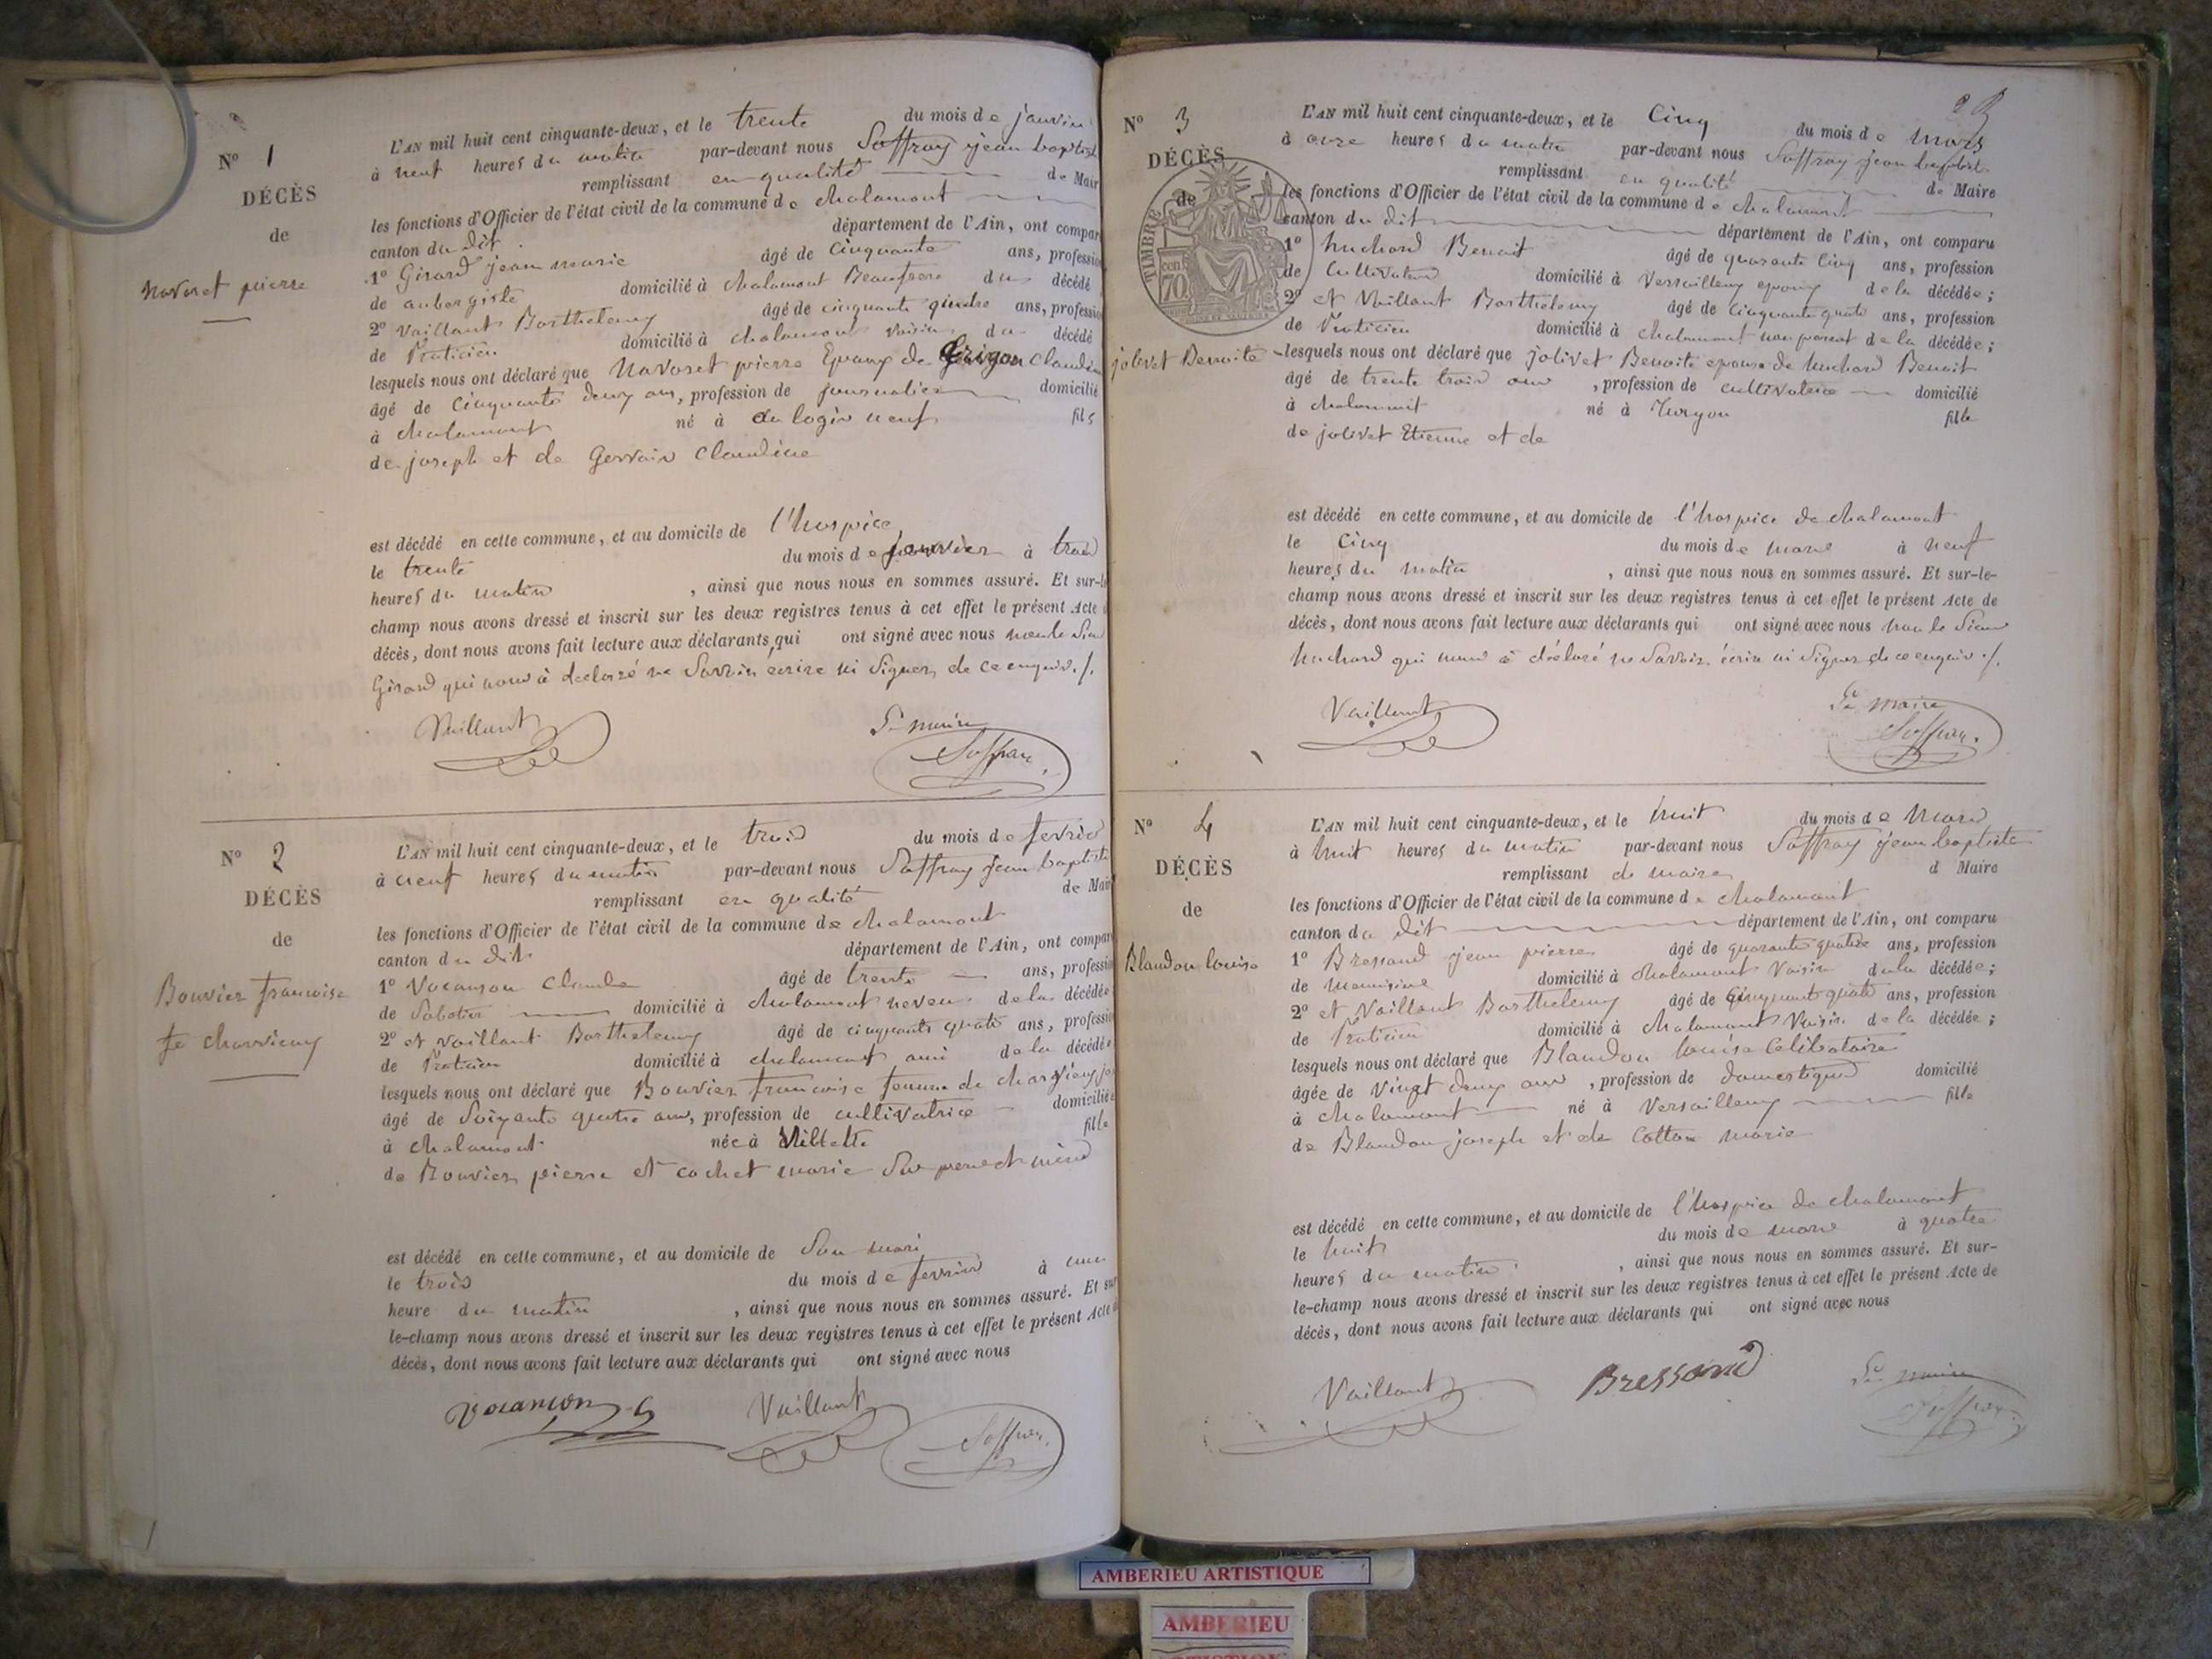 N° 1
DÉCÈS
de
Navoret pierre
L'AN mil huit cent cinquante-deux, et le trente du mois de janvier
à neuf heures du matin par-devant nous Saffray jean baptist
remplissant en qualité de Mair
les fonctions d'Officier de l'état civil de la commune de chalamont
canton du dit département de l'Ain, ont compar
1° Girard jean marie âgé de cinquante ans, professio
de aubergiste domicilié à chalamont Beaufrere du décédé
2° Vaillant Barthelemy âgé de cinquante ans, professio
de Praticien domicilié à chalamont voisin du décédé
lesquels nous ont déclaré que Navoret pierre Epoux de Grigon Claudin
âgé de Cinquante deux ans, profession de journalier domicilié
à chalamont né à au logis neuf fils
de joseph et de Gervais Claudine
est décédé en cette commune, et au domicile de l'hospice
le trente du mois de janvier à trois
heures du matin , ainsi que nous nous en sommes assuré. Et sur-le
champ nous avons dressé et inscrit sur les deux registres tenus à cet effet le présent Acte
décès, dont nous avons fait lecture aux déclarants, qui ont signé avec nous non le Sieu
Girard qui nous à declaré ne Savoir écrire ni Signer, de ce enquis ./.
Vaillant
Le maire
Saffray
N° 2
DÉCÈS
de
Bouvier francoise
fe Charvieux
L'AN mil huit cent cinquante-deux, et le trois du mois de fevrier
à neuf heures du matin par-devant nous Saffray jean baptiste
remplissant en qualité de Mair
les fonctions d'Officier de l'état civil de la commune de chalamont
canton du dit département de l'Ain, ont compar
1° Vocanson Claude âgé de trente ans, professio
de Sabotier domicilié à chalamont neveu de la décédée
2° et Vaillant Barthelemy âgé de cinquante quatre ans, professio
de Praticien domicilié à chalamont ami de la décédée
lesquels nous ont déclaré que Bouvier francoise femme de charvieux
âgé de Soixante quatre ans, profession de cultivatrice domiciliée
à chalamont née à Villette fille
de Bouvier pierre et cochet marie Ses pere et mère
est décédé en cette commune, et au domicile de Son mari
le trois du mois de fevrier à une
heure du matin , ainsi que nous nous en sommes assuré. Et sur
le-champ nous avons dressé et inscrit sur les deux registres tenus à cet effet le présent Acte
décès, dont nous avons fait lecture aux déclarants qui ont signé avec nous
Vocanson
Vaillant
Saffray
N° 3
DÉCÈS
de
jolivet Benoite
TIMBRE
cen 70.
L'AN mil huit cent cinquante-deux, et le Cinq du mois de Mars
à onze heures du matin par-devant nous Saffray jean baptiste
remplissant en qualité de Maire
les fonctions d'Officier de l'état civil de la commune de chalamont
canton du dit département de l'Ain, ont comparu
1° huchard Benoit âgé de quarante cinq ans, profession
de Cultivateur domicilié à Versailleux epoux de la décédée;
2° et Vaillant Barthelemy âgé de Cinquante quatre ans, profession
de Praticien domicilié à chalamont non parent de la décédée;
lesquels nous ont déclaré que jolivet Benoite epouse de huchard Benoit
âgé de trente trois ans , profession de cultivatrice domicilié
à chalamont né à fille
de jolivet Etienne et de
est décédé en cette commune, et au domicile de l'hospice de chalamont
le Cinq du mois de mars à neuf
heures du matin , ainsi que nous nous en sommes assuré. Et sur-le-
champ nous avons dressé et inscrit sur les deux registres tenus à cet effet le présent Acte de
décès, dont nous avons fait lecture aux déclarants qui ont signé avec nous non le Sieur
huchard qui nous à déclaré ne Savoir écrire ni Signer de ce enquis ./.
Vaillant
Le maire
Saffray
N° 4
DÉCÈS
de
Blandon louise
L'AN mil huit cent cinquante-deux, et le huit du mois de Mars
à huit heures du matin par-devant nous Saffray jean baptiste
remplissant de maire d Maire
les fonctions d'Officier de l'état civil de la commune de chalamont
canton du dit département de l'Ain, ont comparu
1° Bressand jean pierre âgé de quarante quatre ans, profession
de menuisier domicilié à chalamont Voisin de la décédée;
2° et Vaillant Barthelemy âgé de Cinquante quatre ans, profession
de Praticien domicilié à chalamont Voisin de la décédée;
lesquels nous ont déclaré que Blandon louise Celibataire
âgée de Vingt deux ans , profession de domestique domicilié
à chalamont né à Versailleux fille
de Blandon joseph et de Cotton marie
est décédé en cette commune, et au domicile de l'hospice de chalamont
le huit du mois de mars à quatre
heures du matin , ainsi que nous nous en sommes assuré. Et sur-
le-champ nous avons dressé et inscrit sur les deux registres tenus à cet effet le présent Acte de
décès, dont nous avons fait lecture aux déclarants qui ont signé avec nous
Vaillant
Bressand
Le maire
Saffray
AMBERIEU ARTISTIQUE
AMBERIEU
ARTISTIQUE